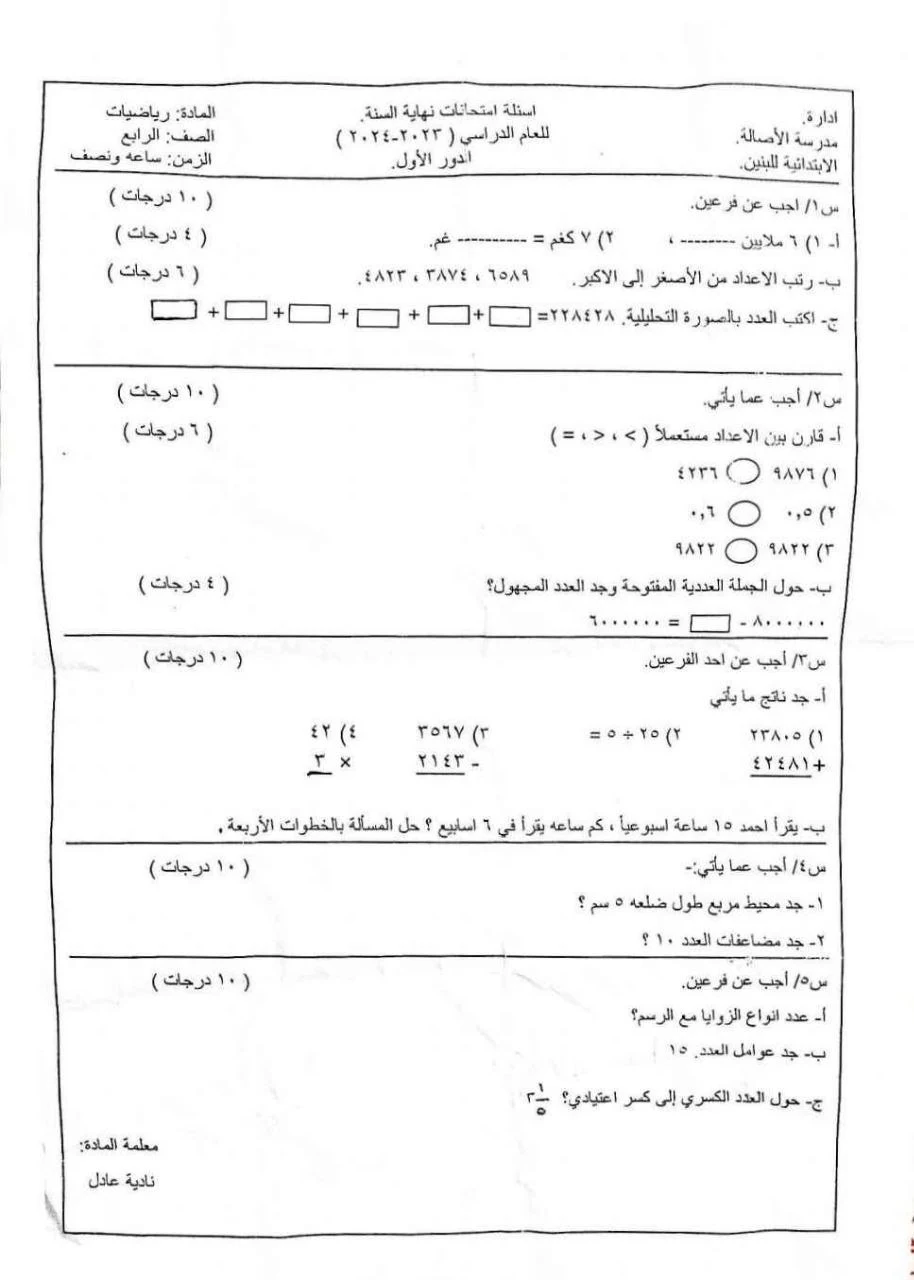 ادارة.
مدرسة الأصالة.
الابتدائية للبنين.
اسئلة امتحانات نهاية السنة.
للعام الدراسي ( ٢٠٢٣-٢٠٢٤ )
الدور الأول.
المادة: رياضيات
الصف: الرابع
الزمن: ساعه ونصف
س١/ اجب عن فرعين. ( ١٠ درجات )
أ- ١) ٦ ملايين -------- ، ٢) ٧ كغم = ---------- غم. ( ٤ درجات )
ب- رتب الاعداد من الأصغر إلى الاكبر. ٦٥٨٩ ، ٣٨٧٤ ، ٤٨٢٣. ( ٦ درجات )
ج- اكتب العدد بالصورة التحليلية. ٢٢٨٤٢٨= + + + + +
س٢/ أجب عما يأتي. ( ١٠ درجات )
أ- قارن بين الاعداد مستعملاً ( > ، < ، = ) ( ٦ درجات )
١) ٩٨٧٦ ◯ ٤٢٣٦
٢) ٠,٥ ◯ ٠,٦
٣) ٩٨٢٢ ◯ ٩٨٢٢
ب- حول الجملة العددية المفتوحة وجد العدد المجهول؟ ( ٤ درجات )
٨٠٠٠٠٠٠ - □ = ٦٠٠٠٠٠٠
س٣/ أجب عن احد الفرعين. ( ١٠ درجات )
أ- جد ناتج ما يأتي
١) ٢٣٨٠٥ ٢) ٢٥ ÷ ٥ = ٣) ٣٥٦٧ ٤) ٤٢
+٤٢٤٨١ - ٢١٤٣ × ٣
ب- يقرأ احمد ١٥ ساعة اسبوعياً ، كم ساعه يقرأ في ٦ اسابيع ؟ حل المسألة بالخطوات الأربعة .
س٤/ أجب عما يأتي:- ( ١٠ درجات )
١- جد محيط مربع طول ضلعه ٥ سم ؟
٢- جد مضاعفات العدد ١٠ ؟
س٥/ أجب عن فرعين. ( ١٠ درجات )
أ- عدد انواع الزوايا مع الرسم؟
ب- جد عوامل العدد. ١٥
ج- حول العدد الكسري إلى كسر اعتيادي؟ ٢ ١/٥
معلمة المادة:
نادية عادل